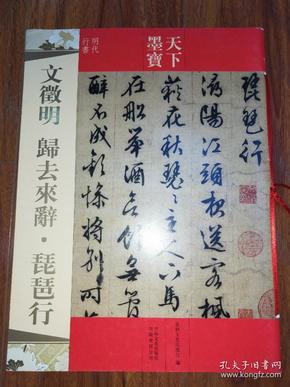 天下
墨寶
明代
行書
文徵明 歸去來辭·琵琶行
琵琶行
潯陽江頭夜送客楓
荻花秋瑟瑟主人下馬
在船舉酒欲飲無管
醉不成歡慘將別時
孔夫子旧书网